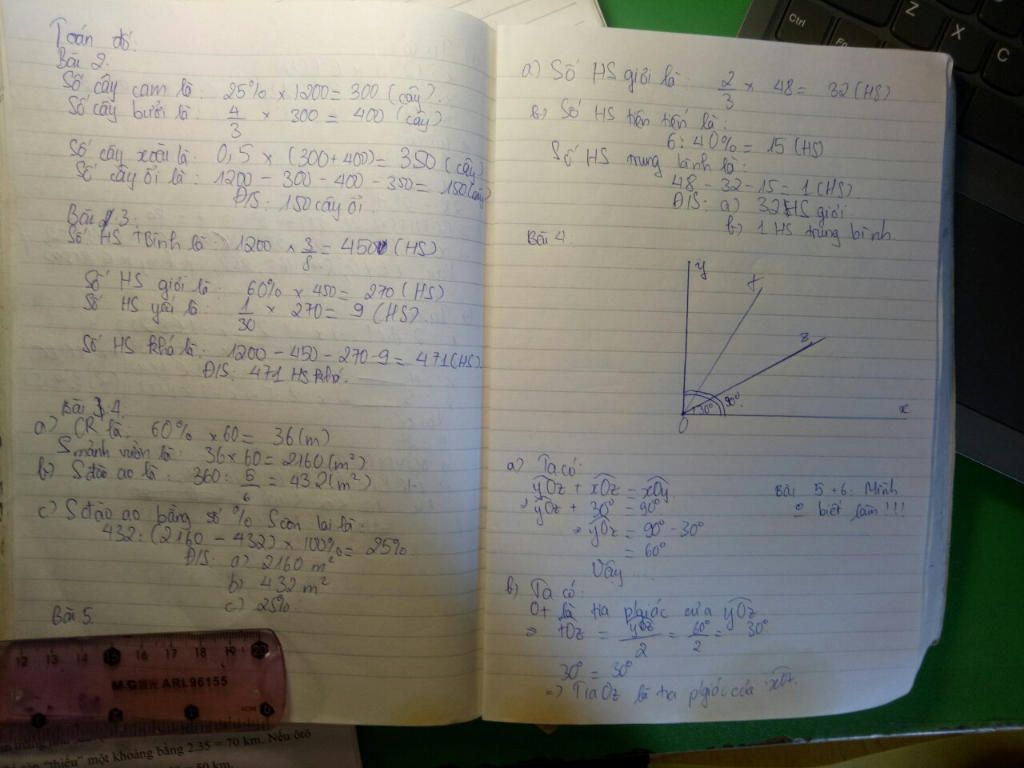 Toán đố.
Bài 2.
Số cây cam là: 25% × 1200 = 300 (cây).
Số cây bưởi là: 4/3 × 300 = 400 (cây)
Số cây xoài là: 0,5 × (300 + 400) = 350 (cây)
Số cây ổi là: 1200 - 300 - 400 - 350 = 150 (cây)
Đ/S: 150 cây ổi.
Bài 3.
Số HS TBình là: 1200 × 3/8 = 450 (HS)
Số HS giỏi là: 60% × 450 = 270 (HS)
Số HS yếu là: 1/30 × 270 = 9 (HS).
Số HS khá là: 1200 - 450 - 270 - 9 = 471 (HS)
Đ/S: 471 HS khá.
Bài 4.
a) CR là: 60% × 60 = 36 (m)
S mảnh vườn là: 36 × 60 = 2160 (m²)
b) S đào ao là: 360 : 5/6 = 432 (m²)
c) S đào ao bằng số % S còn lại là:
432 : (2160 - 432) × 100% = 25%
Đ/S: a) 2160 m²
b) 432 m²
c) 25%
Bài 5.
a) Số HS giỏi là: 2/3 × 48 = 32 (HS)
b) Số HS tiên tiến là:
6 : 40% = 15 (HS)
Số HS trung bình là:
48 - 32 - 15 = 1 (HS)
Đ/S: a) 32 HS giỏi
b) 1 HS trung bình.
Bài 4.
y
t
z
30°
90°
O
x
a) Ta có:
yOz + xOz = xOy
yOz + 30° = 90°
yOz = 90° - 30°
= 60°
Vậy ...
Bài 5 + 6: Mình
0 biết làm!!!
b) Ta có:
Ot là tia p/giác của yOz
⇒ tOz = yOz/2 = 60°/2 = 30°
30° = 30°
=> Tia Oz là tia p/giác của xOt
12 13 14 15 16 17 18 19 20
ARL96155
một khoảng bằng 2.35 = 70 km. Nếu ôtô
50 km.
Ctrl
Fn
Z
X
C